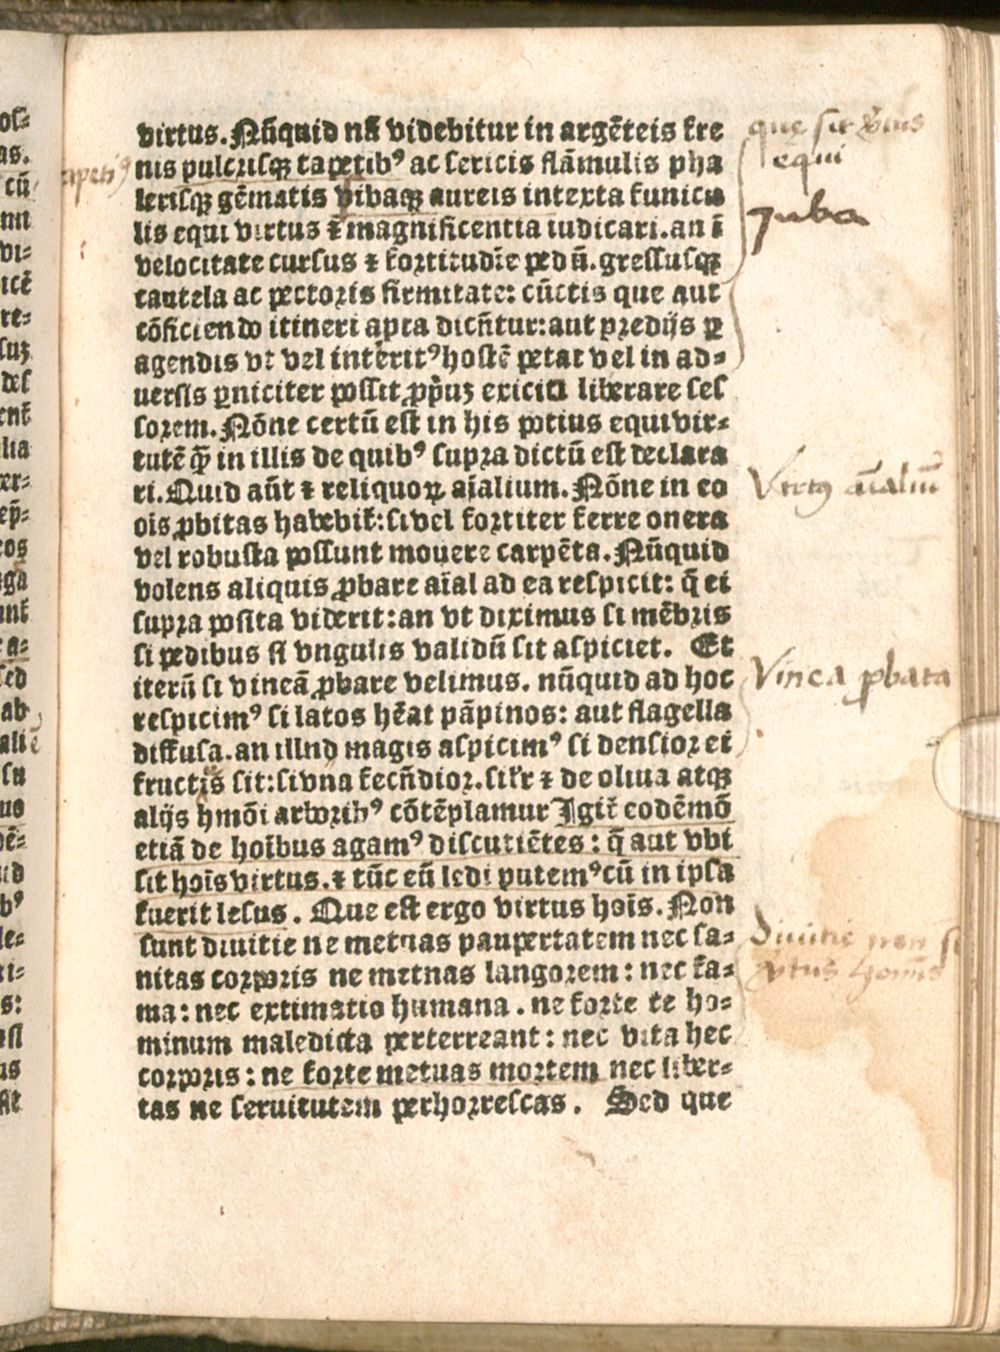 virtus. Nũquid nã videbitur in argẽteis fre
nis pulcrisqꝫ tapetibꝰ ac sericis flãmulis pha
lerisqꝫ gẽmatis vibaqꝫ aureis intexta funicu
lis equi virtus ⁊ magnificentia iudicari. an ĩ
velocitate cursus ⁊ fortitudĩe pedũ. gressusqꝫ
cautela ac pectoris firmitate: cũctis que aut
cõficiendo itineri apta dicñtur: aut prediis ꝑ
agendis vt vel interitꝰ hostẽ petat vel in ad-
uersis ꝑniciter possit ꝓp̃uꝫ exicio liberare ses
sorem. Nõne certũ est in his potius equi vir-
tutẽ q̃ꝫ in illis de quibꝰ supra dictũ est declara
ri. Quid aũt ⁊ reliquoꝝ aĩalium. Nõne in eo
oĩs ꝓbitas habebit̃: si vel fortiter ferre onera
vel robusta possunt mouere carpẽta. Nũquid
volens aliquis ꝓbare aĩal ad ea respicit: q̃ ei
supra posita viderit: an vt diximus si mẽbris
si pedibus si vngulis validũ sit aspiciet. Et
iterũ si vineã ꝓbare velimus. nũquid ad hoc
respicimꝰ si latos hẽat pãpinos: aut flagella
diffusa. an illud magis aspicimꝰ si densior ei
fructꝰ sit: si vna fecũdior. sil̃r ⁊ de oliua atqꝫ
alijs hmõi arboribꝰ cõtẽplamur Igit̃ eodẽmõ
etiã de hoĩbus agamꝰ discutiẽtes: q̃ aut vbi
sit hoĩs virtus. ⁊ tũc eũ ledi putemꝰ cũ in ipsa
fuerit lesus. Que est ergo virtus hoĩs. Non
sunt diuitie ne metuas paupertatem nec sa-
nitas corporis ne metuas langorem: nec fa-
ma: nec extimatio humana. ne forte te ho-
minum maledicta perterreant: nec vita hec
corporis: ne forte metuas mortem nec liber-
tas ne seruitutem perhorrescas. Sed que
quę sit v̓tus
equi
Juba
Virtꝰ aĩaliũ
Vinea ꝓbata
Diuitie non
v̓tus hominis